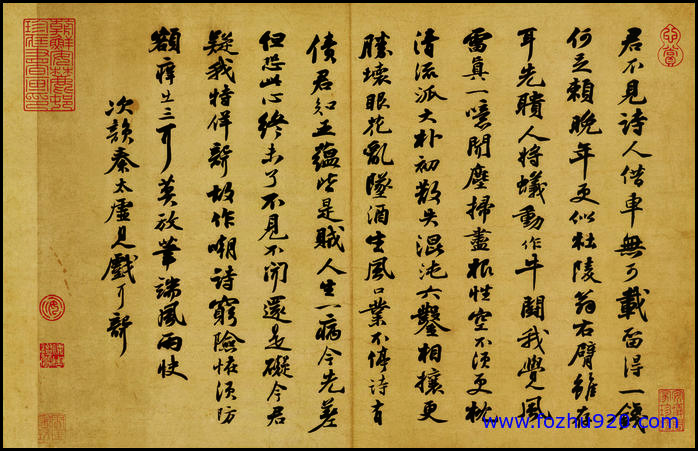 君不見詩人借車無可載留得一錢
何足賴晚年更似杜陵翁右臂雖存
耳先聵人將蟻動作牛鬭我覺風
雷真一噫聞塵掃盡根性空不須更枕
清流派大朴初散失混沌六鑿相攘更
勝壞眼花亂墜酒生風口業不停詩有
債君知五蘊皆是賊人生一病今先差
但恐此心終未了不見不聞還是礙今君
疑我特佯聾故作嘲詩窮險怪須防
額痒出三耳莫放筆端風雨快
次韻秦太虛見戲耳聾
www.fozhu920.com